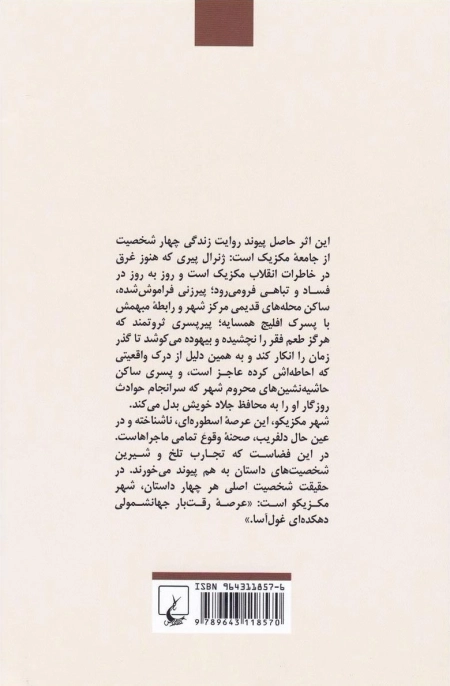 این اثر حاصل پیوند روایت زندگی چهار شخصیت
از جامعهٔ مکزیک است: ژنرال پیری که هنوز غرق
در خاطرات انقلاب مکزیک است و روز به روز در
فساد و تباهی فرومی‌رود؛ پیرزنی فراموش‌شده،
ساکن محله‌های قدیمی مرکز شهر و رابطهٔ مبهمش
با پسرک افلیج همسایه؛ پیرپسری ثروتمند که
هرگز طعم فقر را نچشیده و بیهوده می‌کوشد تا گذر
زمان را انکار کند و به همین دلیل از درک واقعیتی
که احاطه‌اش کرده عاجز است، و پسری ساکن
حاشیه‌نشین‌های محروم شهر که سرانجام حوادث
روزگار او را به محافظ جلاد خویش بدل می‌کند.
شهر مکزیکو، این عرصهٔ اسطوره‌ای، ناشناخته و در
عین حال دلفریب، صحنهٔ وقوع تمامی ماجراهاست.
در این فضاست که تجارب تلخ و شیرین
شخصیت‌های داستان به هم پیوند می‌خورند. در
حقیقت شخصیت اصلی هر چهار داستان، شهر
مکزیکو است: «عرصهٔ رقت‌بار جهانشمولی
دهکده‌ای غول‌آسا.»
ISBN 964311857-6
9 789643 118570